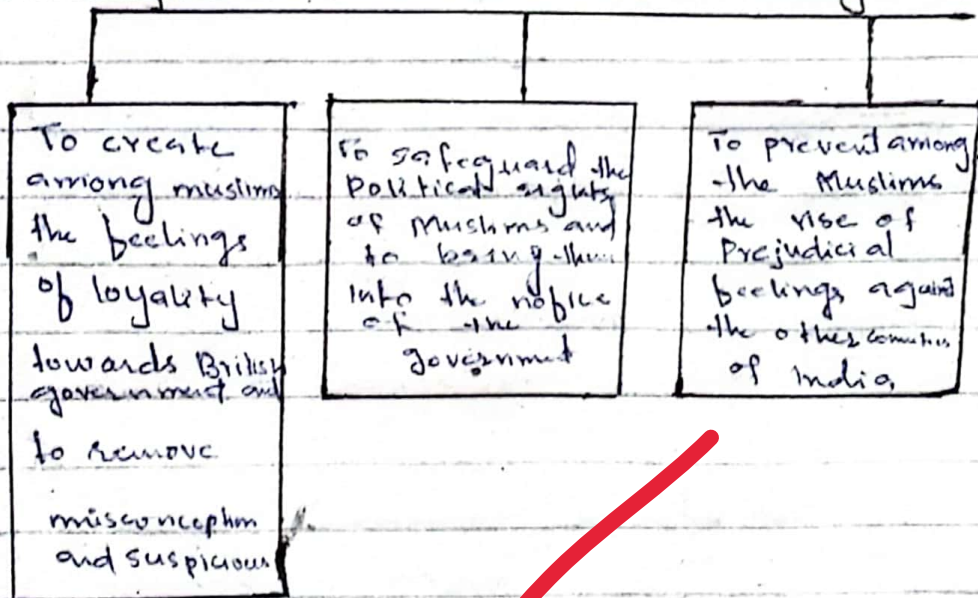 To create
among muslims
the feelings
of loyality
towards British
government and
to remove
misconception
and suspicious
To safeguard the
Political rights
of Muslims and
to bring them
into the notice
of the
government
To prevent among
the Muslims
the rise of
Prejudicial
feelings against
the other
of India